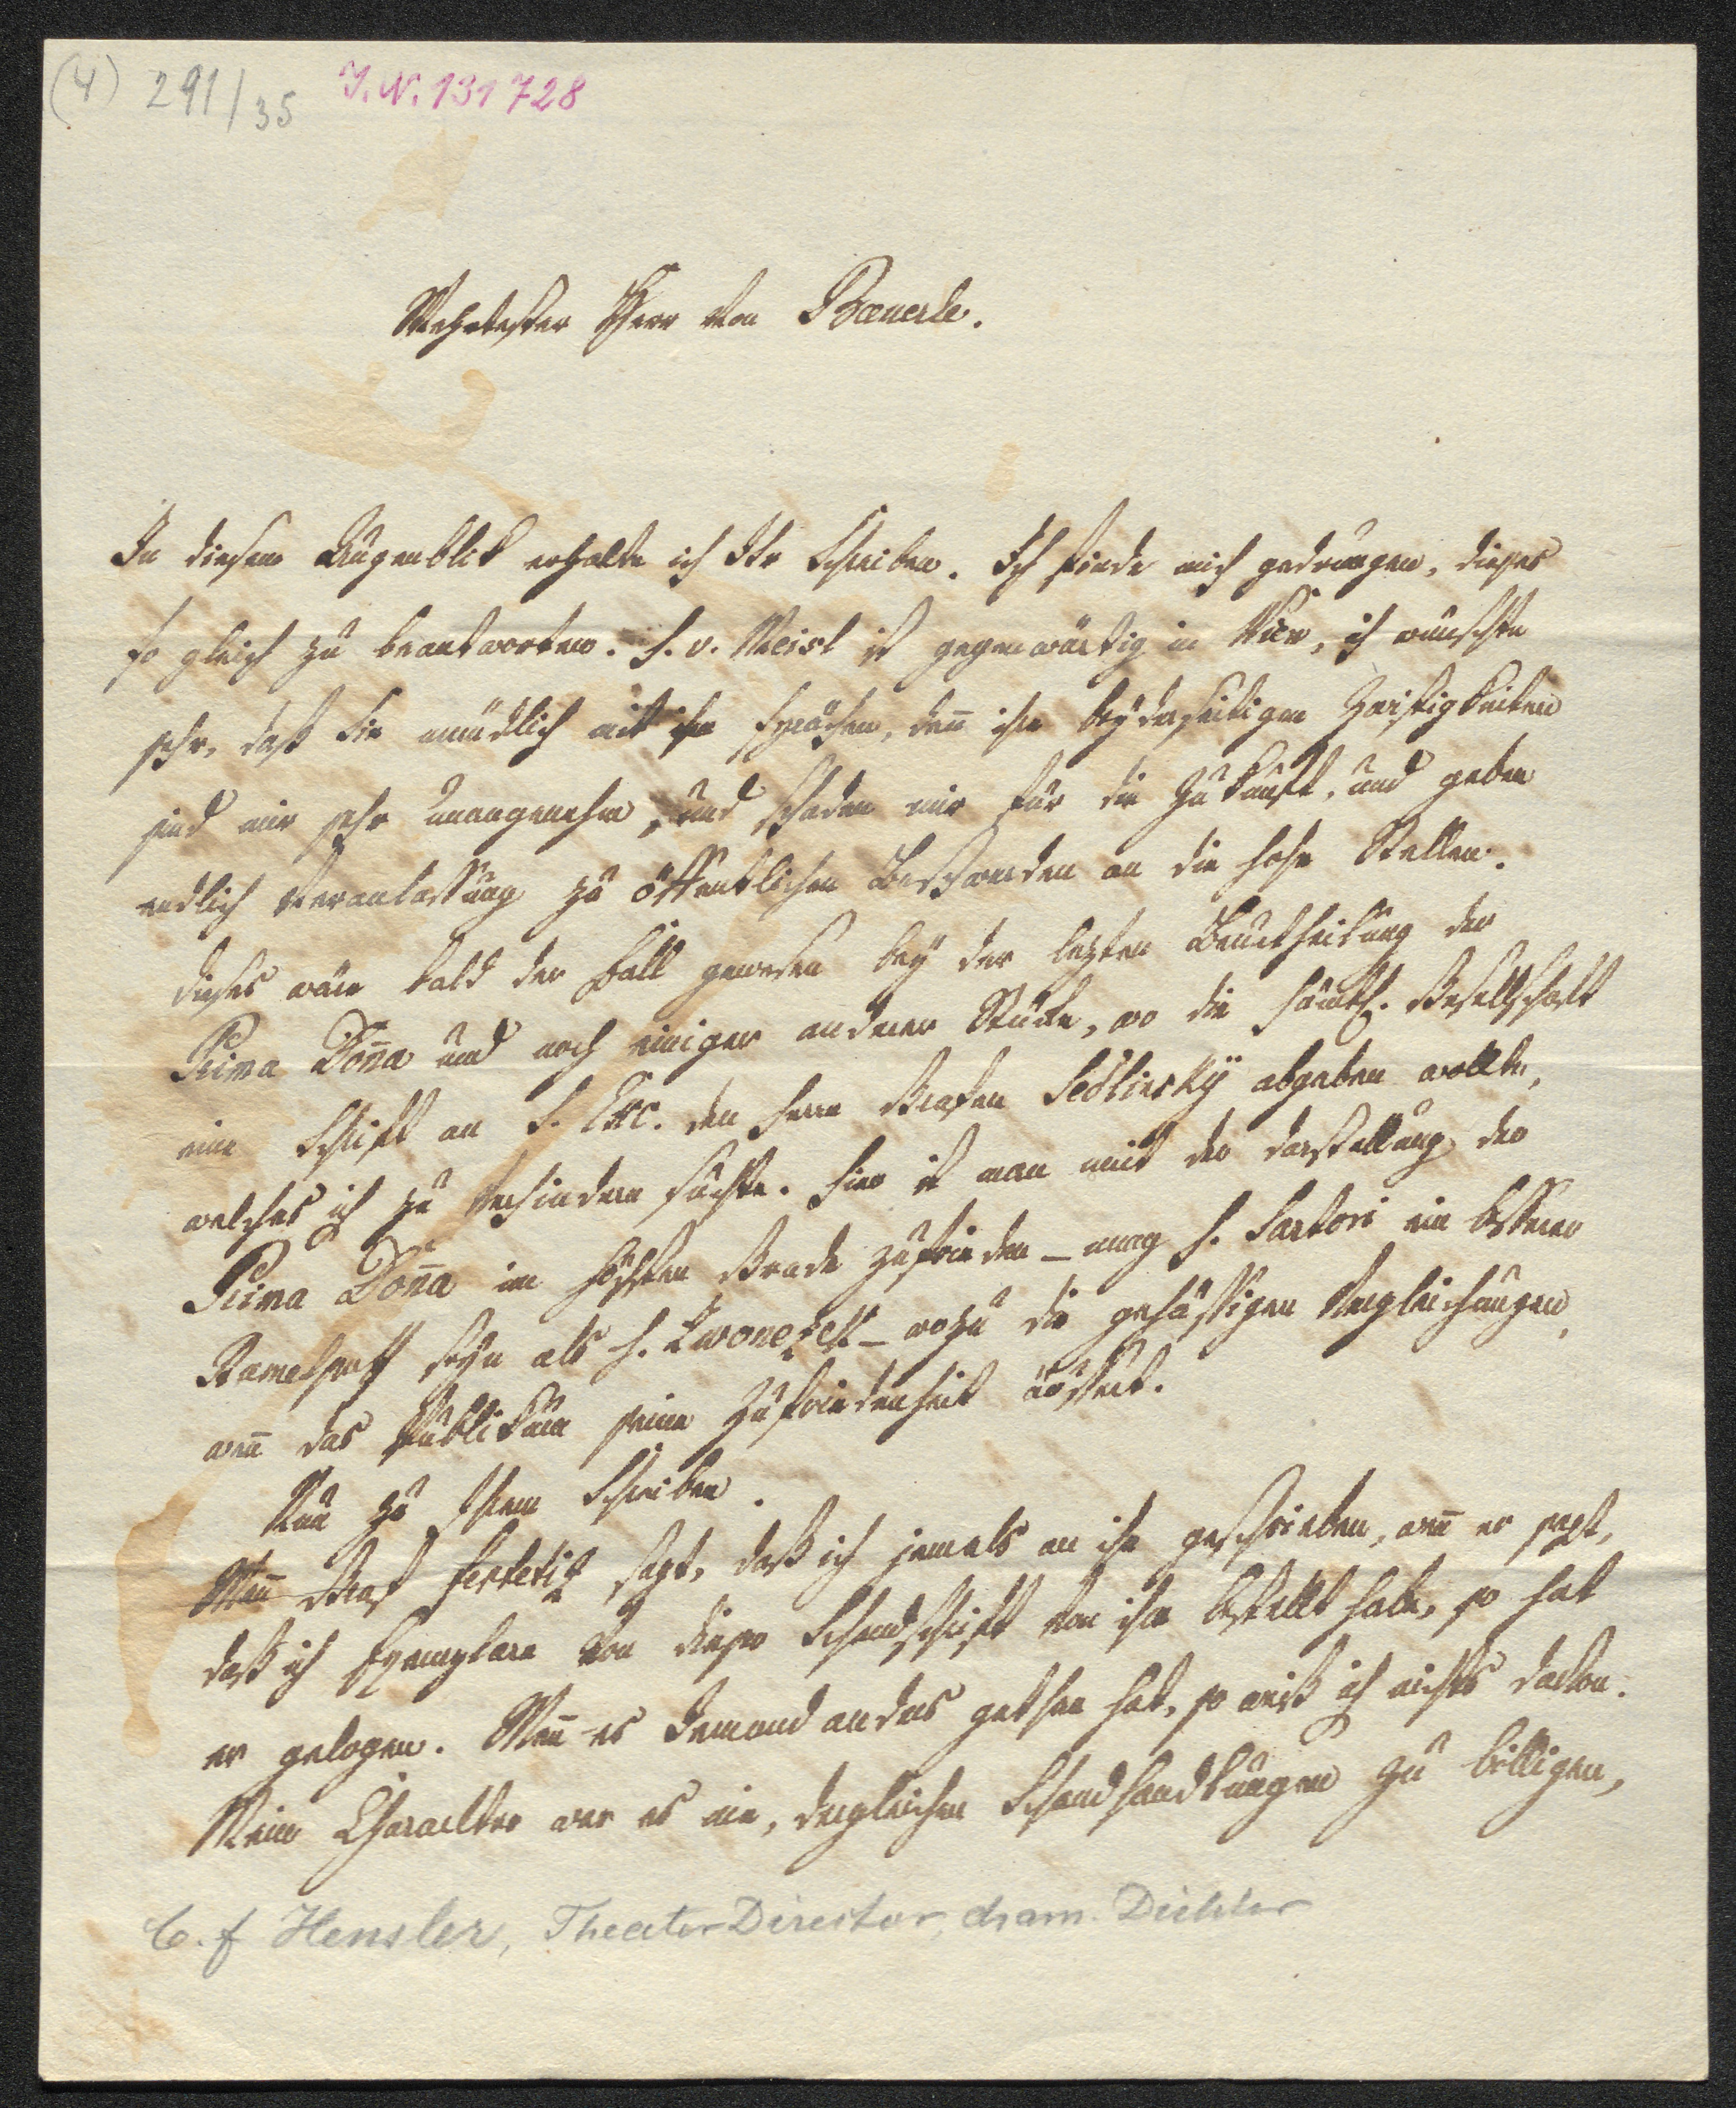 (4) 291/35 J.N. 131728
Wehrtester Herr von Bæuerle.
In diesem Augenblik erhalte ich Ihr Schreiben. Ich finde mich gedrungen, dieses
so gleich zu beantworten. H. v. Meisl ist gegenwärtig in Wien, ich wünschte
sehr, daß Sie mündlich mit ihm sprächen, deñ ihre beyderseitigen Zwistigkeiten
sind mir sehr unangenehm, und schaden mir für die Zukunft, und geben
endlich Veranlassung zu öffentlichen Beschwerden an die hohe Stellen.
dieses wäre bald der Fall gewesen bey der lezten Beurtheilung der
Prima Doña und noch einiger anderer Stüke, wo die sämtl. Gesellschaft
eine Schrift an S. Exc. den Herrn Grafen Sedlinsky abgeben wollte,
welches ich zu verhindern suchte. Hier ist man mit der Darstellung der
Prima Doña im höchsten Grade zufrieden – mag H. Sartori ein besserer
Ramelhoff seyn als H. Zwonezek – wozu die gehässigen Vergleichungen,
weñ das Publikum seine Zufriedenheit äussert.
Nun zu Ihrem Schreiben.
Weñ Graf Festetiz sagt, daß ich jemals an ihn geschrieben, weñ er sagt,
daß ich Exemplare von dieser Schandschrift von ihm bestellt habe, so hat
er gelogen. Weñ es Jemand anders gethan hat, so weiß ich nichts davon.
Mein Charackter war es nie, dergleichen Schandhandlungen zu billigen,
C. f Hensler, Theater Director, dram. Dichter